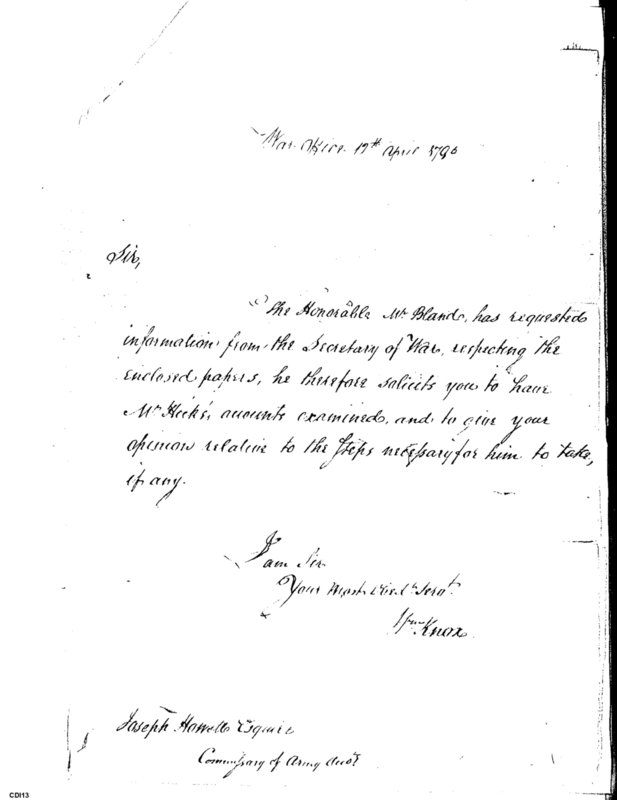 War Office 19th April 1790
Sir,
The Honorable Mr. Bland, has requested
information from the Secretary of War, respecting the
enclosed papers, he therefore solicits you to have
Mr accounts examined, and to give your
opinion relative to the Steps necessary for him to take,
if any.
I am Sir
Your Most Obed. Servt.
Wm Knox
Joseph Howell Esquire
Commissary of Army Accts
CDI13